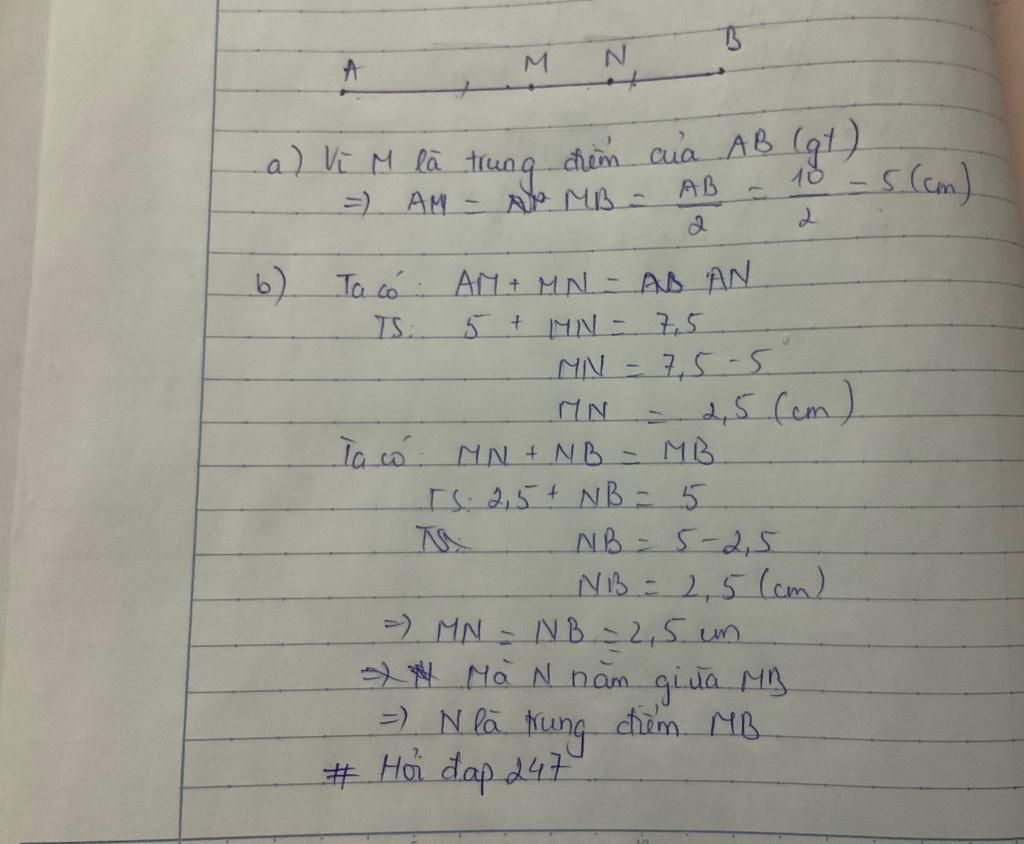 A M N B
a) Vì M là trung điểm của AB (gt)
=) AM = MB = AB/2 = 10/2 = 5 (cm)
b) Ta có: AM + MN = AB AN
TS: 5 + MN = 7,5
MN = 7,5 - 5
MN = 2,5 (cm)
Ta có: MN + NB = MB
TS: 2,5 + NB = 5
TS: NB = 5 - 2,5
NB = 2,5 (cm)
=) MN = NB = 2,5 cm
=) N Mà N nằm giữa MB
=) N là trung điểm MB
# Hỏi đap 247